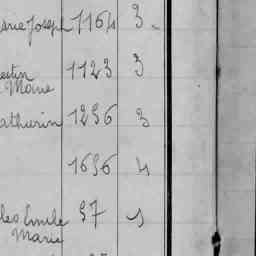 arie Joseph 1164 3
estin 1123 3
Marie
athurin 1256 3
1656 4
les Emile 57 1
Marie